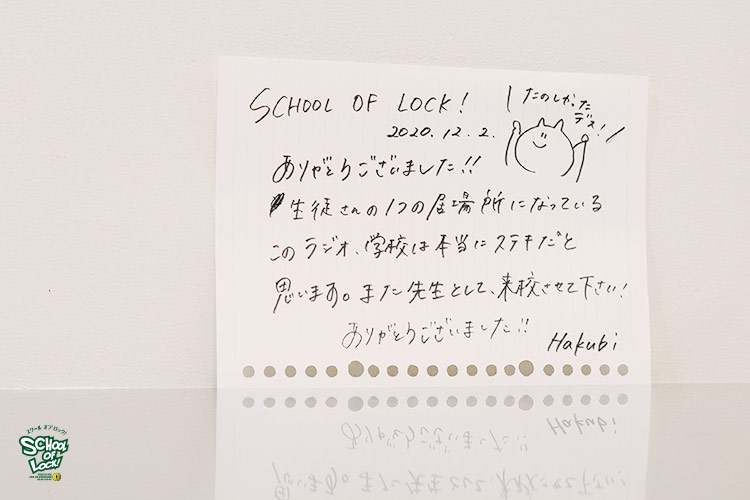 SCHOOL OF LOCK!
2020.12.2.
たのしかった
デス!
ありがとうございました!!
生徒さんの1つの居場所になっている
このラジオ、学校は本当にステキだと
思います。また先生として、来校させて下さい!
ありがとうございました!!
Hakubi
スクール オブ ロック!
SCHOOL
OF
LOCK!